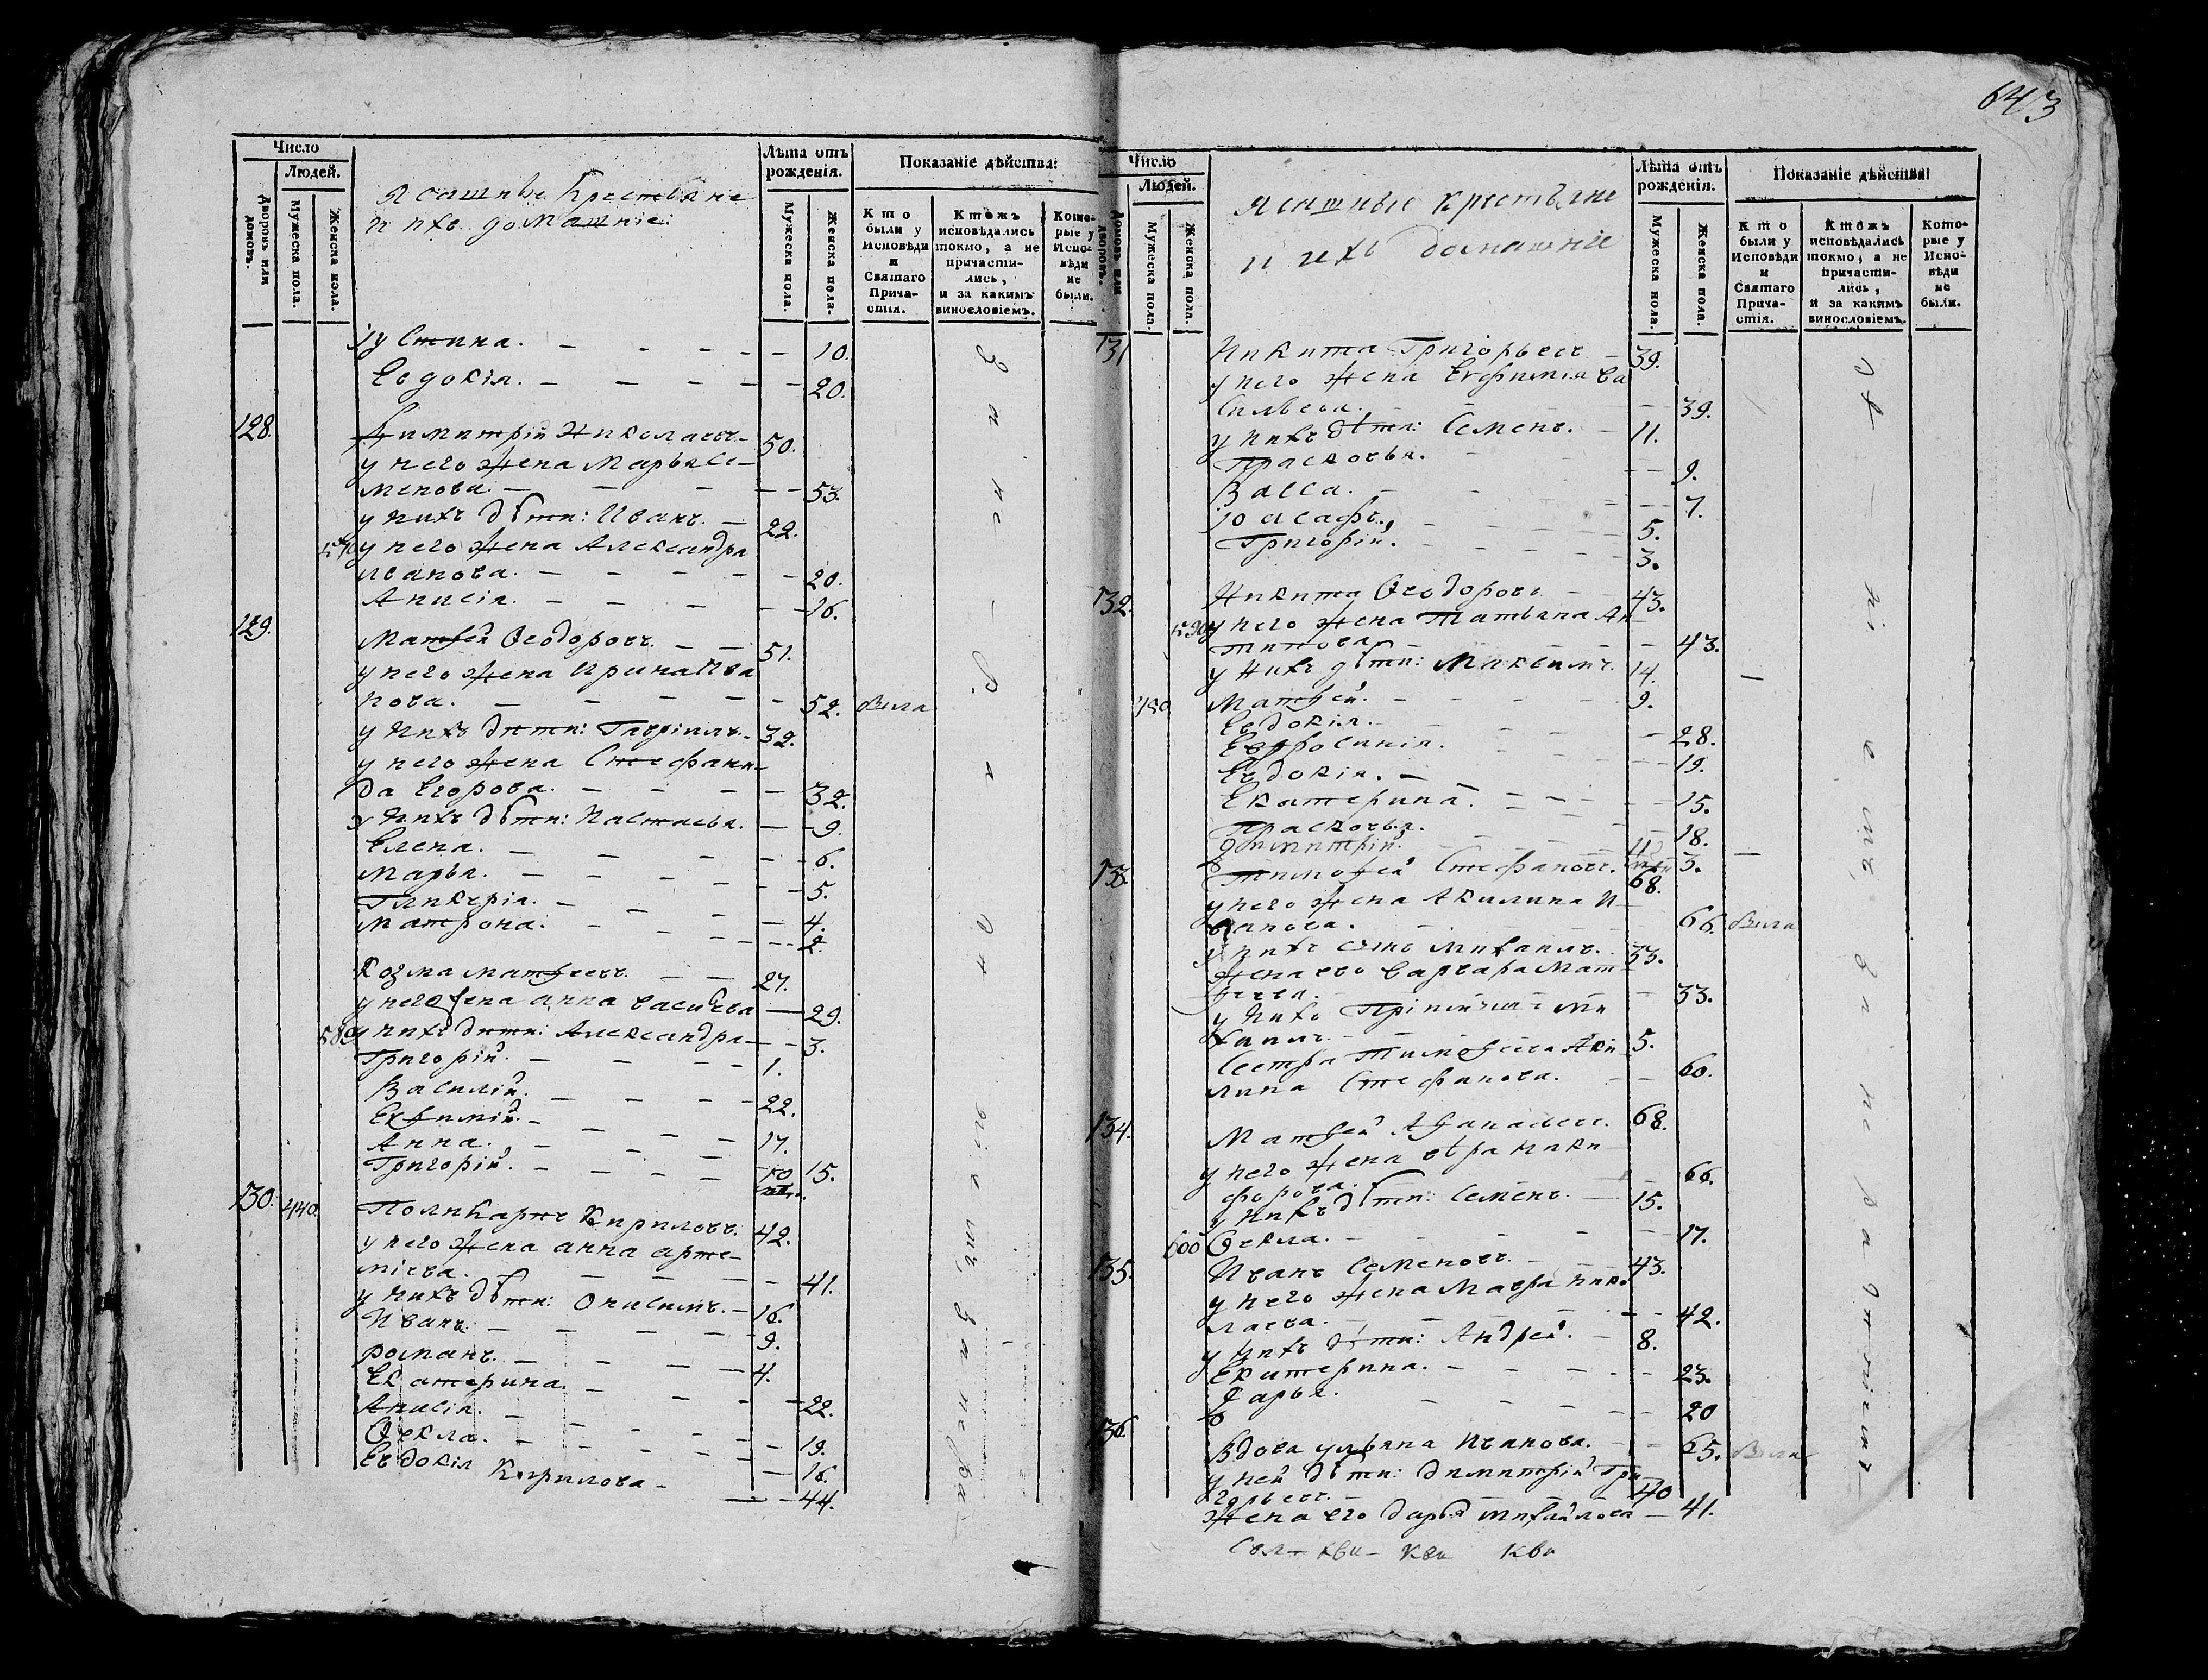 643
Число
Людей.
Дворовъ или домовъ.
Мужеска пола.
Женска пола.
Ясашные Крестьяне
и ихъ домашніе:
Лѣта отъ рожденія.
Мужеска пола.
Женска пола.
Показаніе дѣйства:
Кто были у Исповѣди и Святаго Причастія.
Ктожъ исповѣдались токмо, а не причастились, и за какимъ винословіемъ.
Которые у Исповѣди не были.
Іустина. 10.
Евдокія. 20.
128. Димитрій Николаевъ 50.
у него жена Марья Се-
менова. 53.
у нихъ дѣти: Иванъ. 22.
570 у него жена Александра
Иванова. 20.
Анисія. 16.
129. Матѳей Ѳеодоровъ. 51.
у него жена Ирина Ива
нова. 52. Была
у нихъ дѣти: Гавріилъ. 32.
у него жена Стефани-
да Егорова. 32.
у нихъ дѣти: Настасья. 9.
Елена. 6.
Марья. 5.
Гликерія. 4.
Матрона. 2.
Козма Матѳеевъ. 27.
у него жена Анна Васильева 29.
580 у нихъ дѣти: Александра 3.
Григорій. 1.
Василій. 22.
Евфимій. 17.
Анна. 15.
Григорій. 10
130. 440. Поликарпъ Кириловъ. 42.
у него жена Анна Арте-
міева. 41.
у нихъ дѣти: Онисимъ. 16.
Иванъ. 9.
Романъ. 4.
Екатерина 22.
Анисія. 19.
Ѳекла. 16.
Евдокія Кирилова 44.
Число
Людей.
Домовъ или дворовъ.
Мужеска пола.
Женска пола.
Ясашные крестьяне
и ихъ домашніе
Лѣта отъ рожденія.
Мужеска пола.
Женска пола.
Показаніе дѣйства:
Кто были у Исповѣди и Святаго Причастія.
Ктожъ исповѣдались токмо, а не причастились, и за какимъ винословіемъ.
Которые у Исповѣди не были.
131 Никита Григорьевъ 39.
у него жена Евфимія Ва
сильева. 39.
у нихъ дѣти: Семенъ. 11.
Прасковья. 9.
Васса. 7.
Іоасафъ. 5.
Григорій. 3.
132. Никита Ѳеодоровъ 43.
590 у него жена Татьяна Ан-
типова 43.
у нихъ дѣти: Максимъ. 14.
450 Матѳей. 9.
Евдокія. 28.
Евфросинія. 19.
Евдокія. 15.
Екатерина. 18.
Прасковья. 3.
Димитрій.
133. Тимоѳей Стефановъ. 68.
у него жена Акилина И-
ванова. 66. Была
у нихъ сынъ Михаилъ. 33.
Жена его Варвара Мат-
ѳеева. 33.
у нихъ Ми
хаилъ. 5.
Сестра Тимоѳеева Аки
лина Стефанова. 60.
134. Матѳей Аѳанасьевъ. 68.
у него жена Вѣра Ники
форова. 66.
у нихъ дѣти: Семенъ. 15.
600 Ѳекла. 17.
135. Иванъ Семеновъ. 43.
у него жена Мавра Нико
лаева. 42.
у нихъ дѣти: Андрей. 8.
Екатерина. 23.
Дарья. 20
136. Вдова Ульяна Иванова. 65. Была
у ней дѣти: Димитрій Гри
горьевъ. 40
Жена его Дарья Михайлова 41.